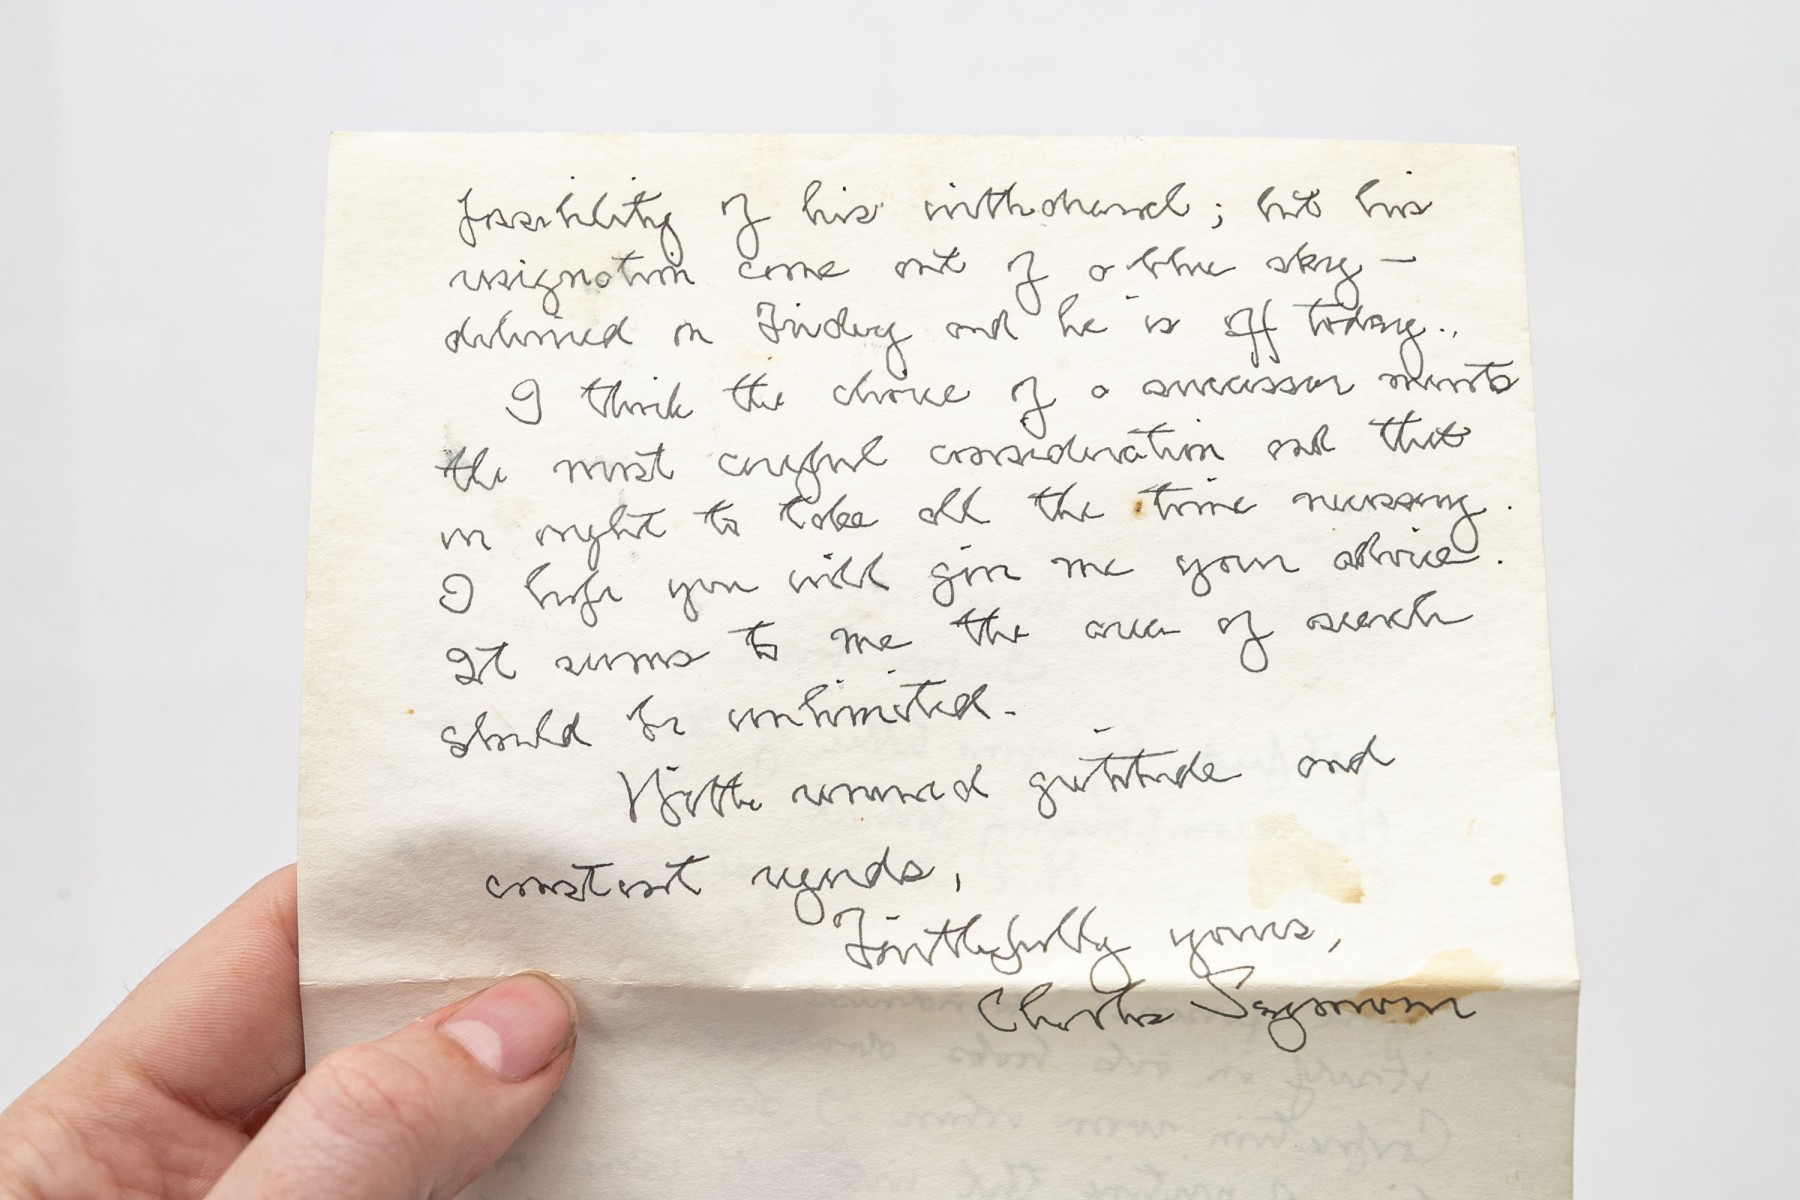 possibility of his withdrawal; but his
resignation came out of a blue sky —
delivered on Friday and he is off today..
I think the choice of a successor merits
the most careful consideration and that
we ought to take all the time necessary.
I hope you will give me your advice.
It seems to me the area of search
should be unlimited.
With renewed gratitude and
constant regards,
Faithfully yours,
Charles Seymour